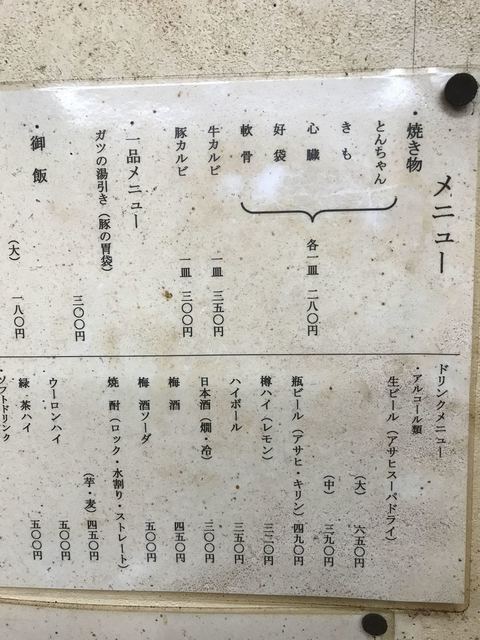 メニュー
・焼き物
とんちゃん
きも
心臓
好袋
軟骨
各一皿 二八〇円
牛カルビ 一皿 三五〇円
豚カルビ 一皿 三〇〇円
・一品メニュー
ガツの湯引き（豚の胃袋）
三〇〇円
・御飯
（大） 一八〇円
ドリンクメニュー
・アルコール類
生ビール（アサヒスーパドライ）
（大） 六五〇円
（中） 三九〇円
瓶ビール（アサヒ・キリン）四九〇円
樽ハイ（レモン） 三二〇円
ハイボール 三五〇円
日本酒（燗・冷） 三〇〇円
梅酒 四五〇円
梅酒ソーダ 五〇〇円
焼酎（ロック・水割り・ストレート）
（芋・麦）四五〇円
ウーロンハイ 五〇〇円
緑茶ハイ 五〇〇円
・ソフトドリンク